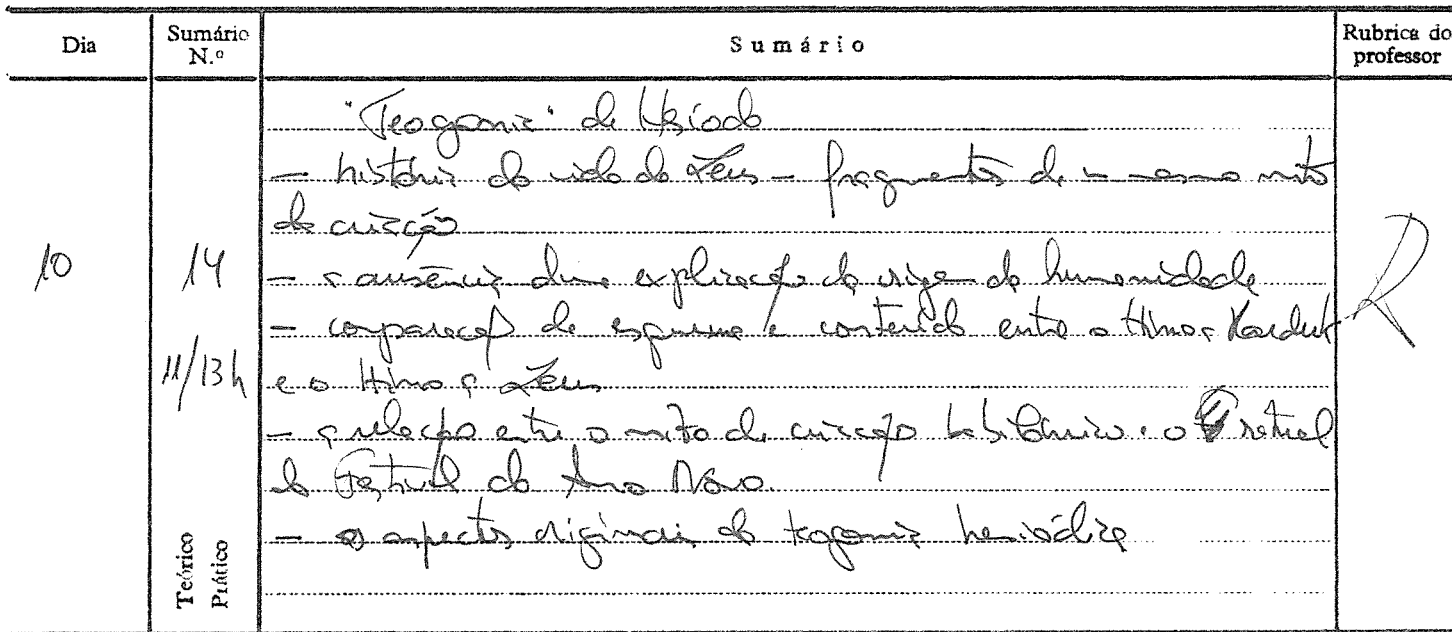 Dia
Sumário N.º
Sumário
Rubrica do professor
"Teogonia" de Hesíodo
– história da vida de Zeus – fragmentos de um mesmo mito
de criação
10
14
– a ausência duma explicação da origem da humanidade
– comparação de esquema e conteúdo entre o Hino a Marduk
11/13h
e o Hino a Zeus
– a relação entre o mito de criação babilónico e o ritual
do Festival do Ano Novo.
– os aspectos originais da teogonia hesiódica
Teórico
Prático
R